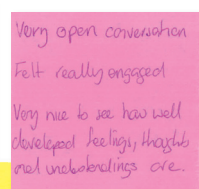 Very open conversation
Felt really engaged
Very nice to see how well
developed feelings, thoughts
and understandings are.